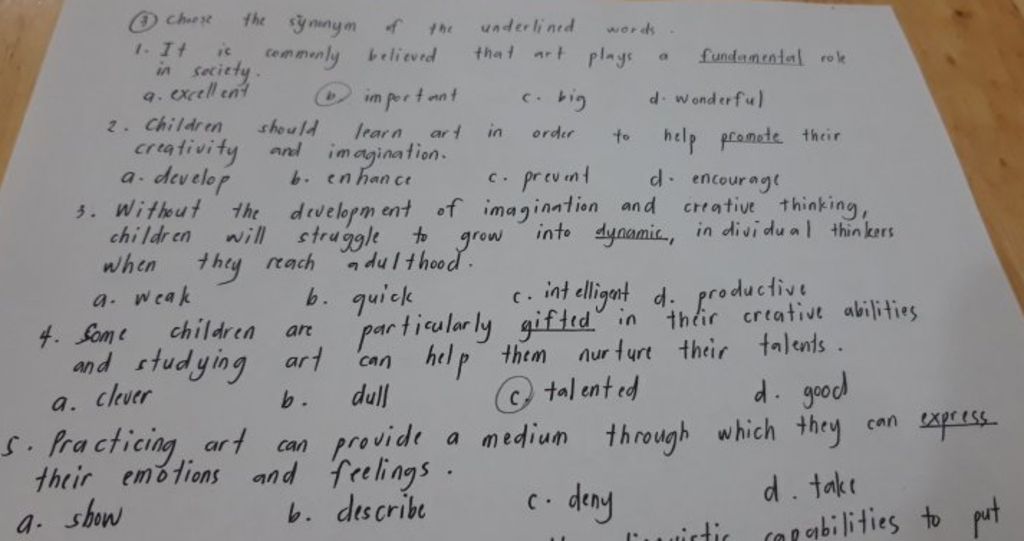 ③ Choose the synonym of the underlined words.
1. It is commonly believed that art plays a fundamental role
in society.
a. excellent b. important c. big d. wonderful
2. Children should learn art in order to help promote their
creativity and imagination.
a. develop b. enhance c. prevent d. encourage
3. Without the development of imagination and creative thinking,
children will struggle to grow into dynamic, individual thinkers
when they reach adulthood.
a. weak b. quick c. intelligent d. productive
4. Some children are particularly gifted in their creative abilities
and studying art can help them nurture their talents.
a. clever b. dull c. talented d. good
5. Practicing art can provide a medium through which they can express
their emotions and feelings.
a. show b. describe c. deny d. take
capabilities to put